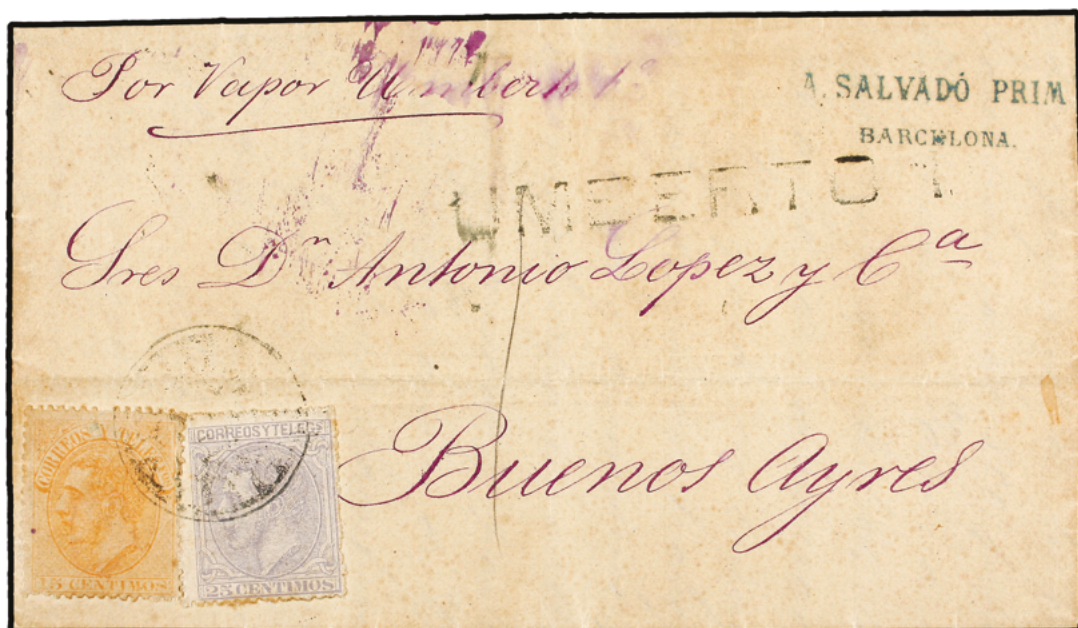 Por Vapor Umberto 1º
A. SALVADÓ PRIM
BARCELONA.
UMBERTO I.
Sres Dn Antonio Lopez y Cª
Buenos Ayres
CORREOS Y TELE
15 CENTIMOS
CORREOS Y TELEGS
25 CENTIMOS